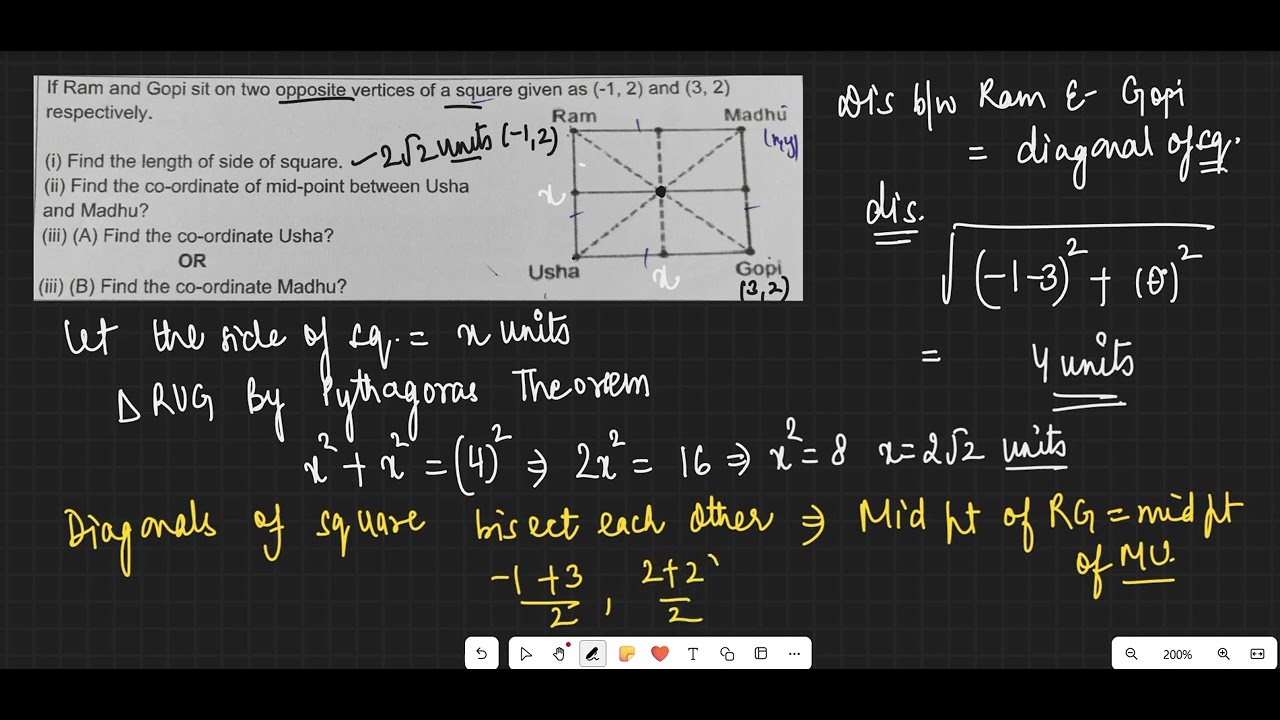 If Ram and Gopi sit on two opposite vertices of a square given as (-1, 2) and (3, 2)
respectively.
Ram Madhu
(-1,2) (x,y)
(i) Find the length of side of square. 2√2 units
(ii) Find the co-ordinate of mid-point between Usha
and Madhu?
(iii) (A) Find the co-ordinate Usha?
OR
(iii) (B) Find the co-ordinate Madhu?
x
Usha x Gopi
(3,2)
Dis b/w Ram & Gopi
= diagonal of sq.
dis.
√(-1-3)² + (0)²
= 4 units
Let the side of sq. = x units
Δ RUG By Pythagoras Theorem
x² + x² = (4)² ⇒ 2x² = 16 ⇒ x² = 8 x = 2√2 units
Diagonals of square bisect each other ⇒ Mid pt of RG = mid pt
of MU.
-1+3/2 , 2+2/2
T ... 200%